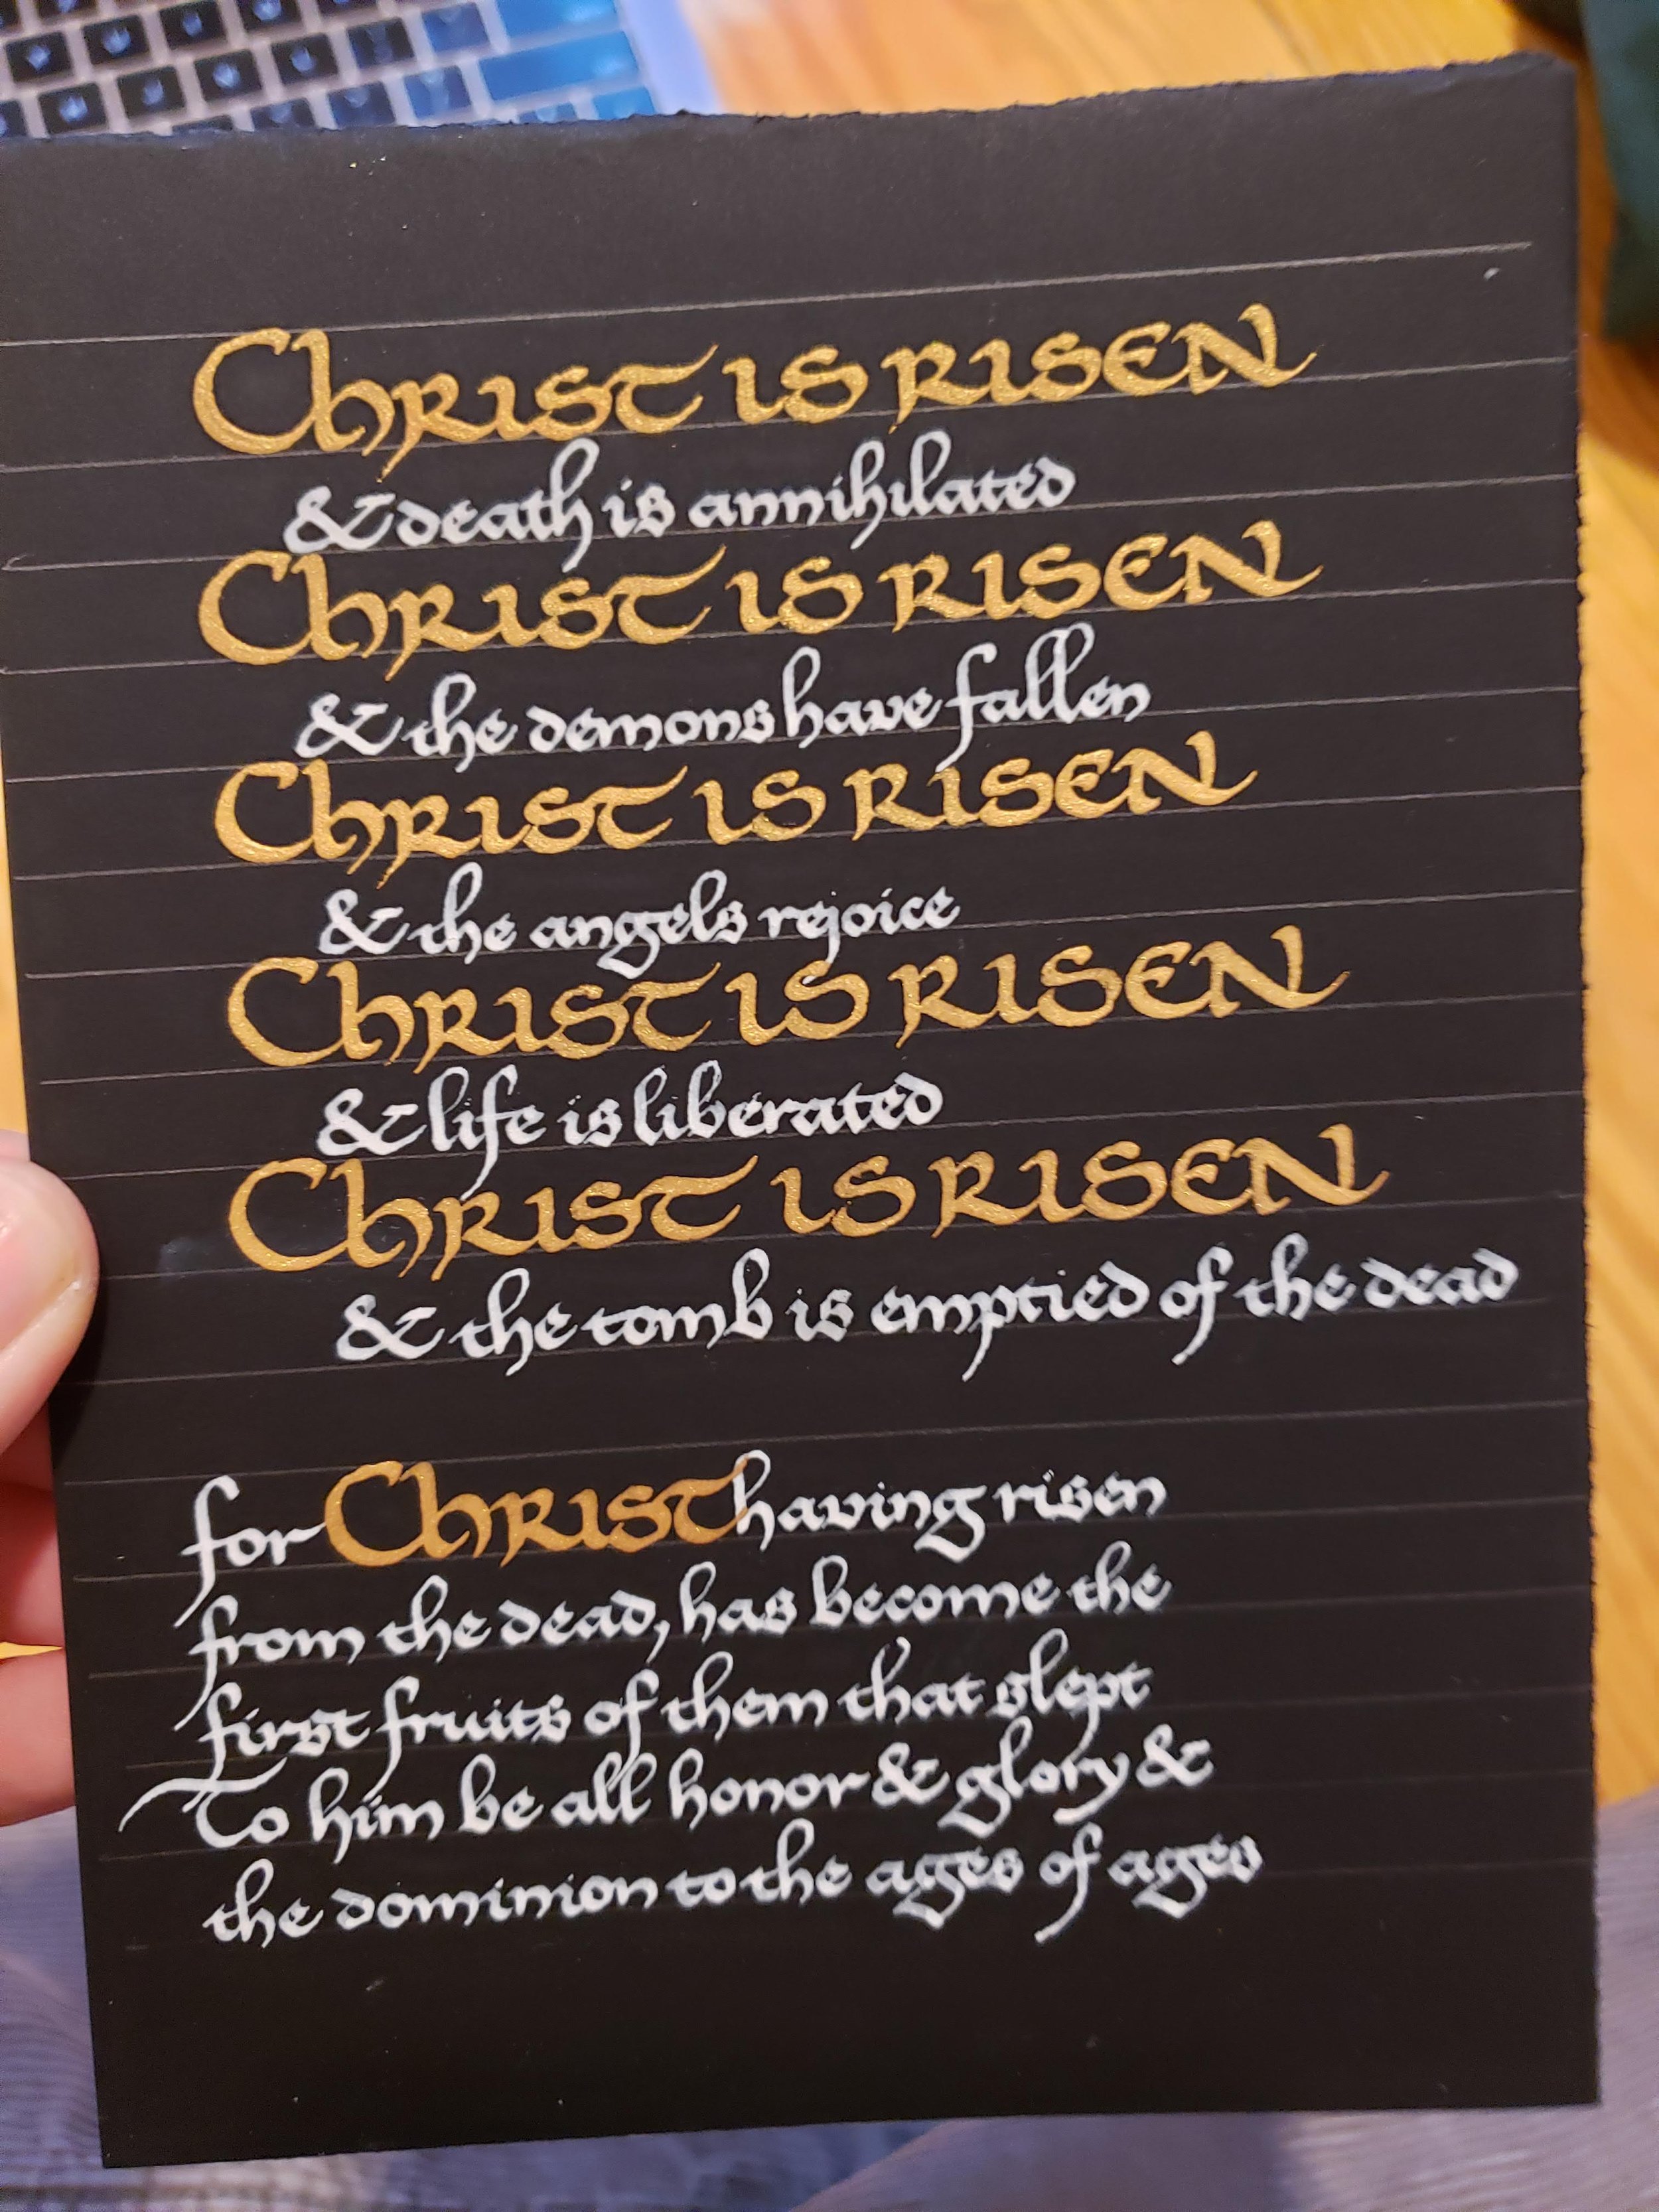 Christ is risen
& death is annihilated
Christ is risen
& the demons have fallen
Christ is risen
& the angels rejoice
Christ is risen
& life is liberated
Christ is risen
& the tomb is emptied of the dead
for Christ having risen
from the dead, has become the
first fruits of them that slept
To him be all honor & glory &
the dominion to the ages of ages